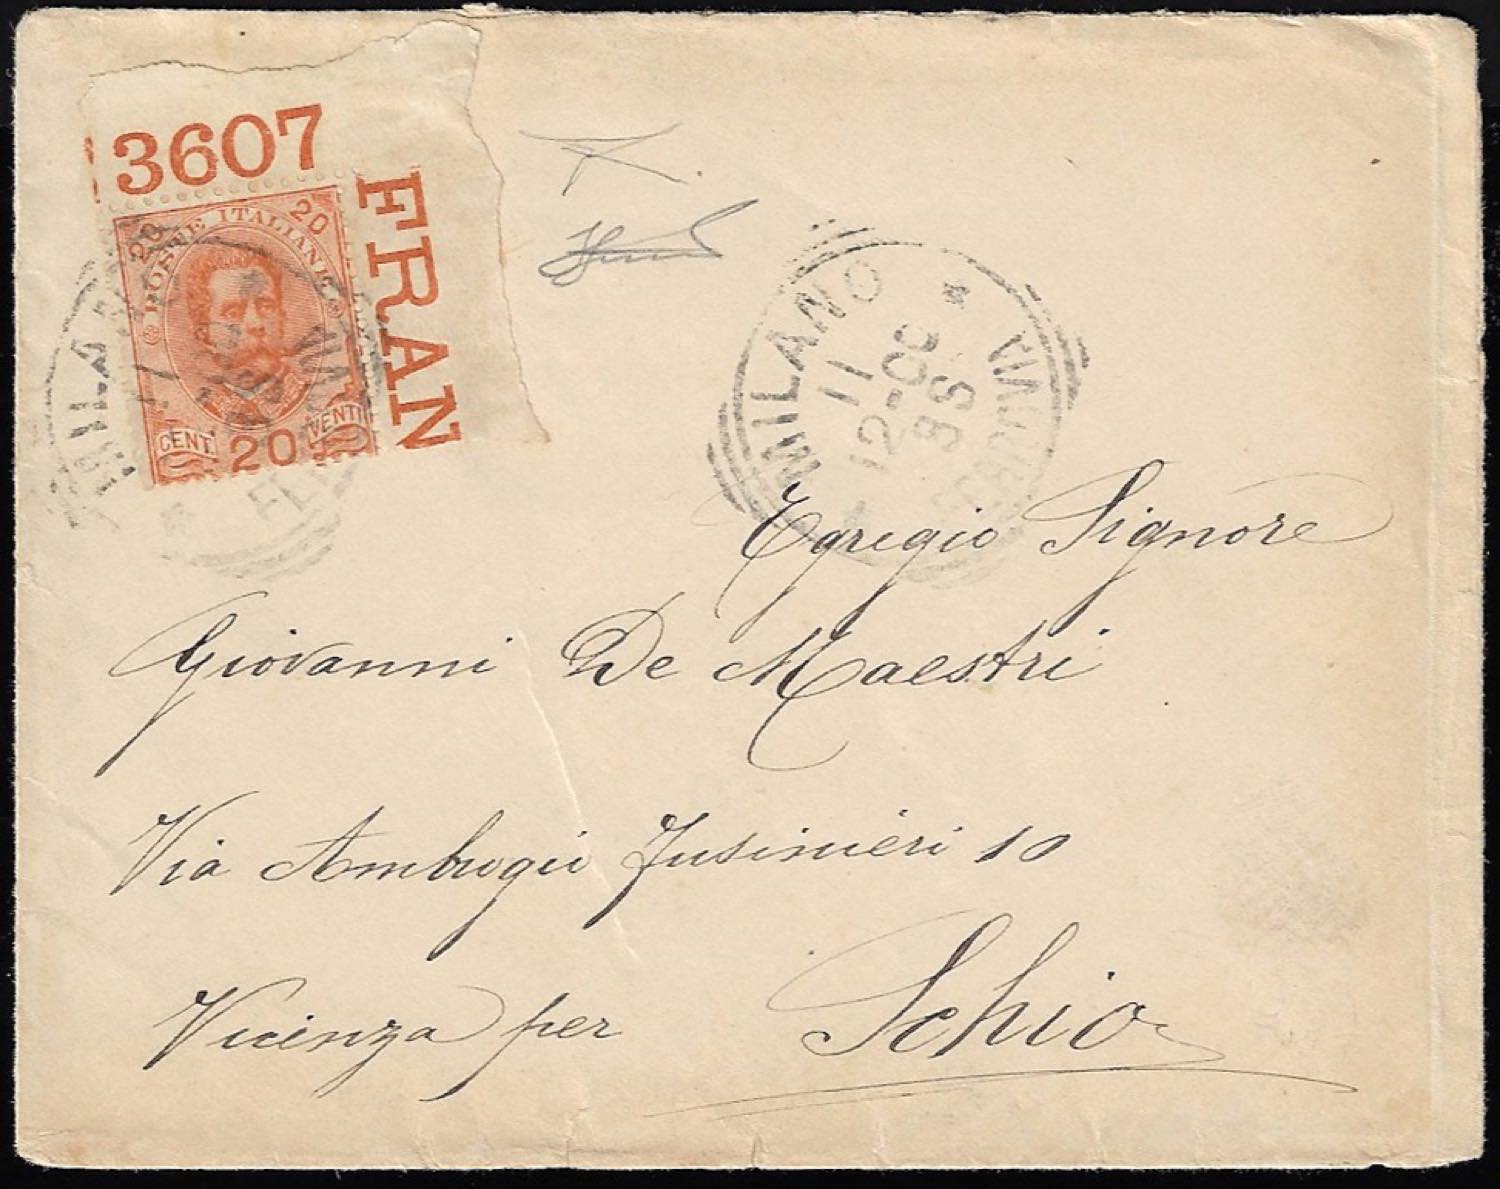 3607
FRAN
20 POSTE ITALIANE 20
CENT. 20 VENTI
MILANO
FERROVIA
MILANO
11
12-
95
FERROVIA
Egregio Signore
Giovanni De Maestri
Via Ambrogio Fusinieri 10
Vicenza per Schio